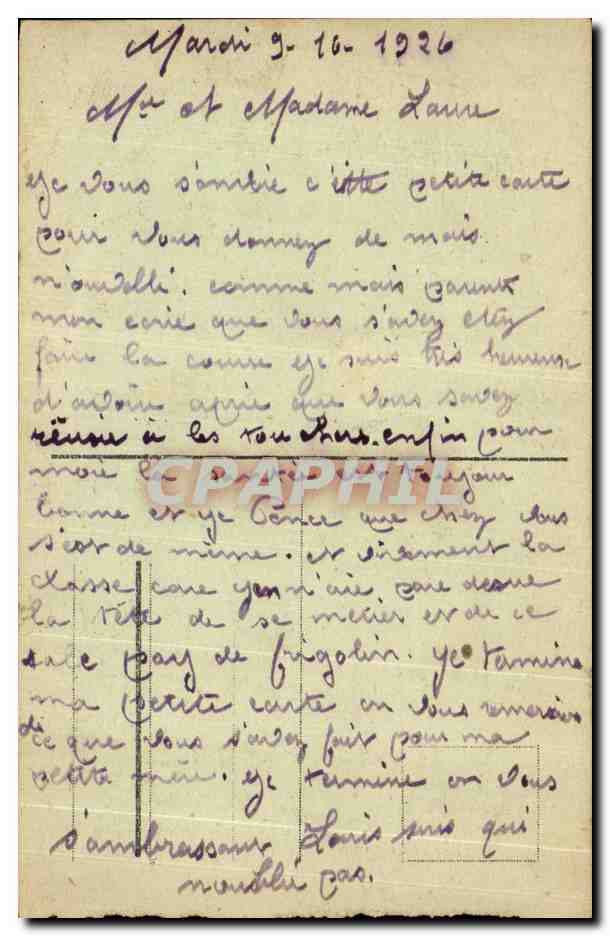 Mardi 9-16-1926
Mr et Madame Laure
je vous s'anvoie c'ette petite carte
pour vous donnez de mais
n'ouvelle. comme mais parent
mon ecrie que vous s'avez etez
faire la course je suis très heureuse
d'avoir aprie que vous s'avez
réusie à les toucher. enfin pour
moie la santée est toujour
bonne et je Pance que chez vous
s'est de même. et vivement la
classe care j'en n'aie pare desue
la tête de se métier et de ce
sale pay de frigolin. je termine
ma petite carte an vous remerciant
di ce que vous s'avez fait pour ma
petite mère. je termine an vous
s'ambrassant Louis suis qui
n'oublie pas.
CPAPHIL